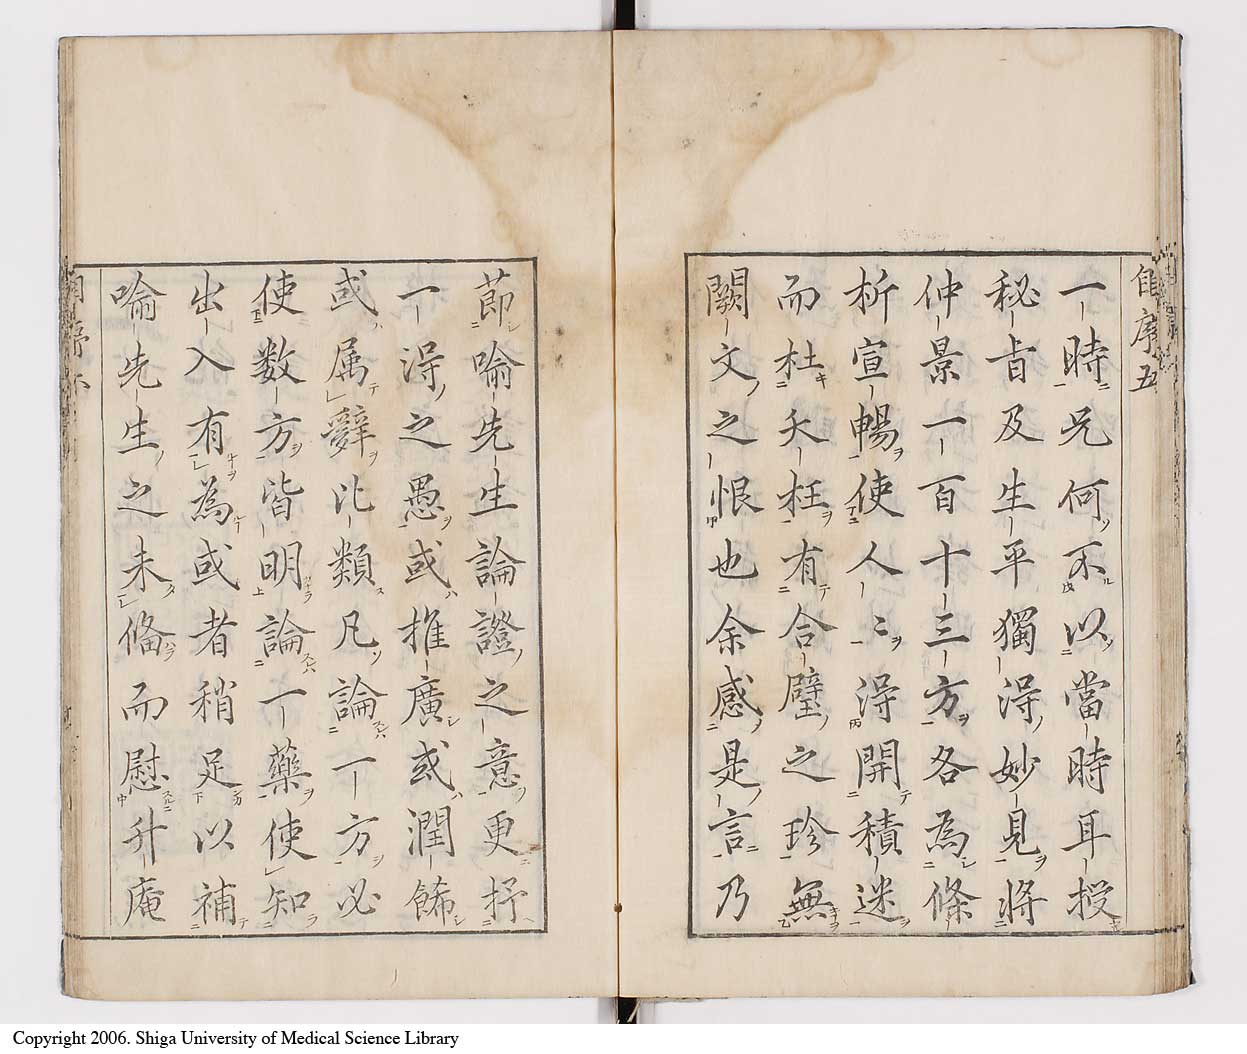 自序五
一時兄何不以當時耳授
秘旨及生平獨得妙見將
仲景一百十三方各為條
析宣暢使人〻得開積迷
而杜夭枉有合璧之珍無
闕文之恨也余感是言乃
節喻先生論證之意更抒
一得之愚或推廣或潤餙
或属辭比類凡論一方必
使数方皆明論一藥使知
出入有為或者稍足以補
喻先生之未俻而慰升庵
Copyright 2006. Shiga University of Medical Science Library